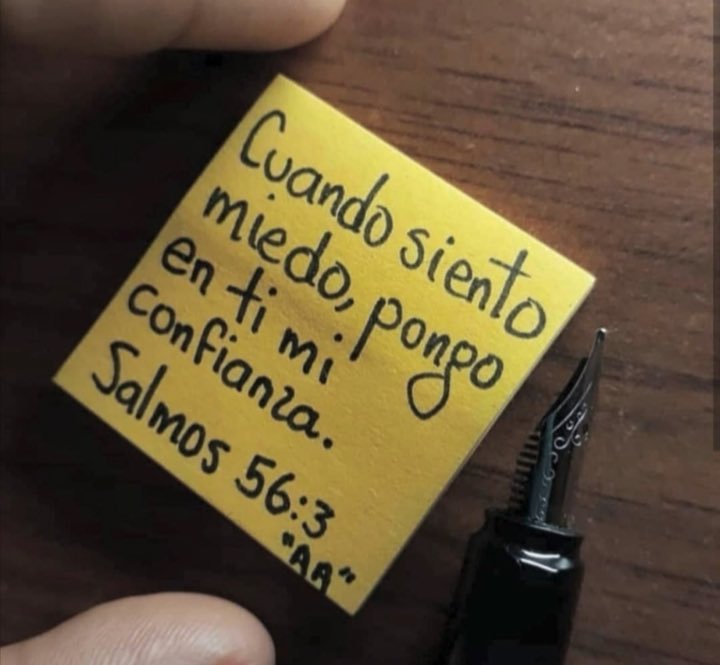 Cuando siento
miedo, pongo
en ti mi
confianza.
Salmos 56:3
"AA"